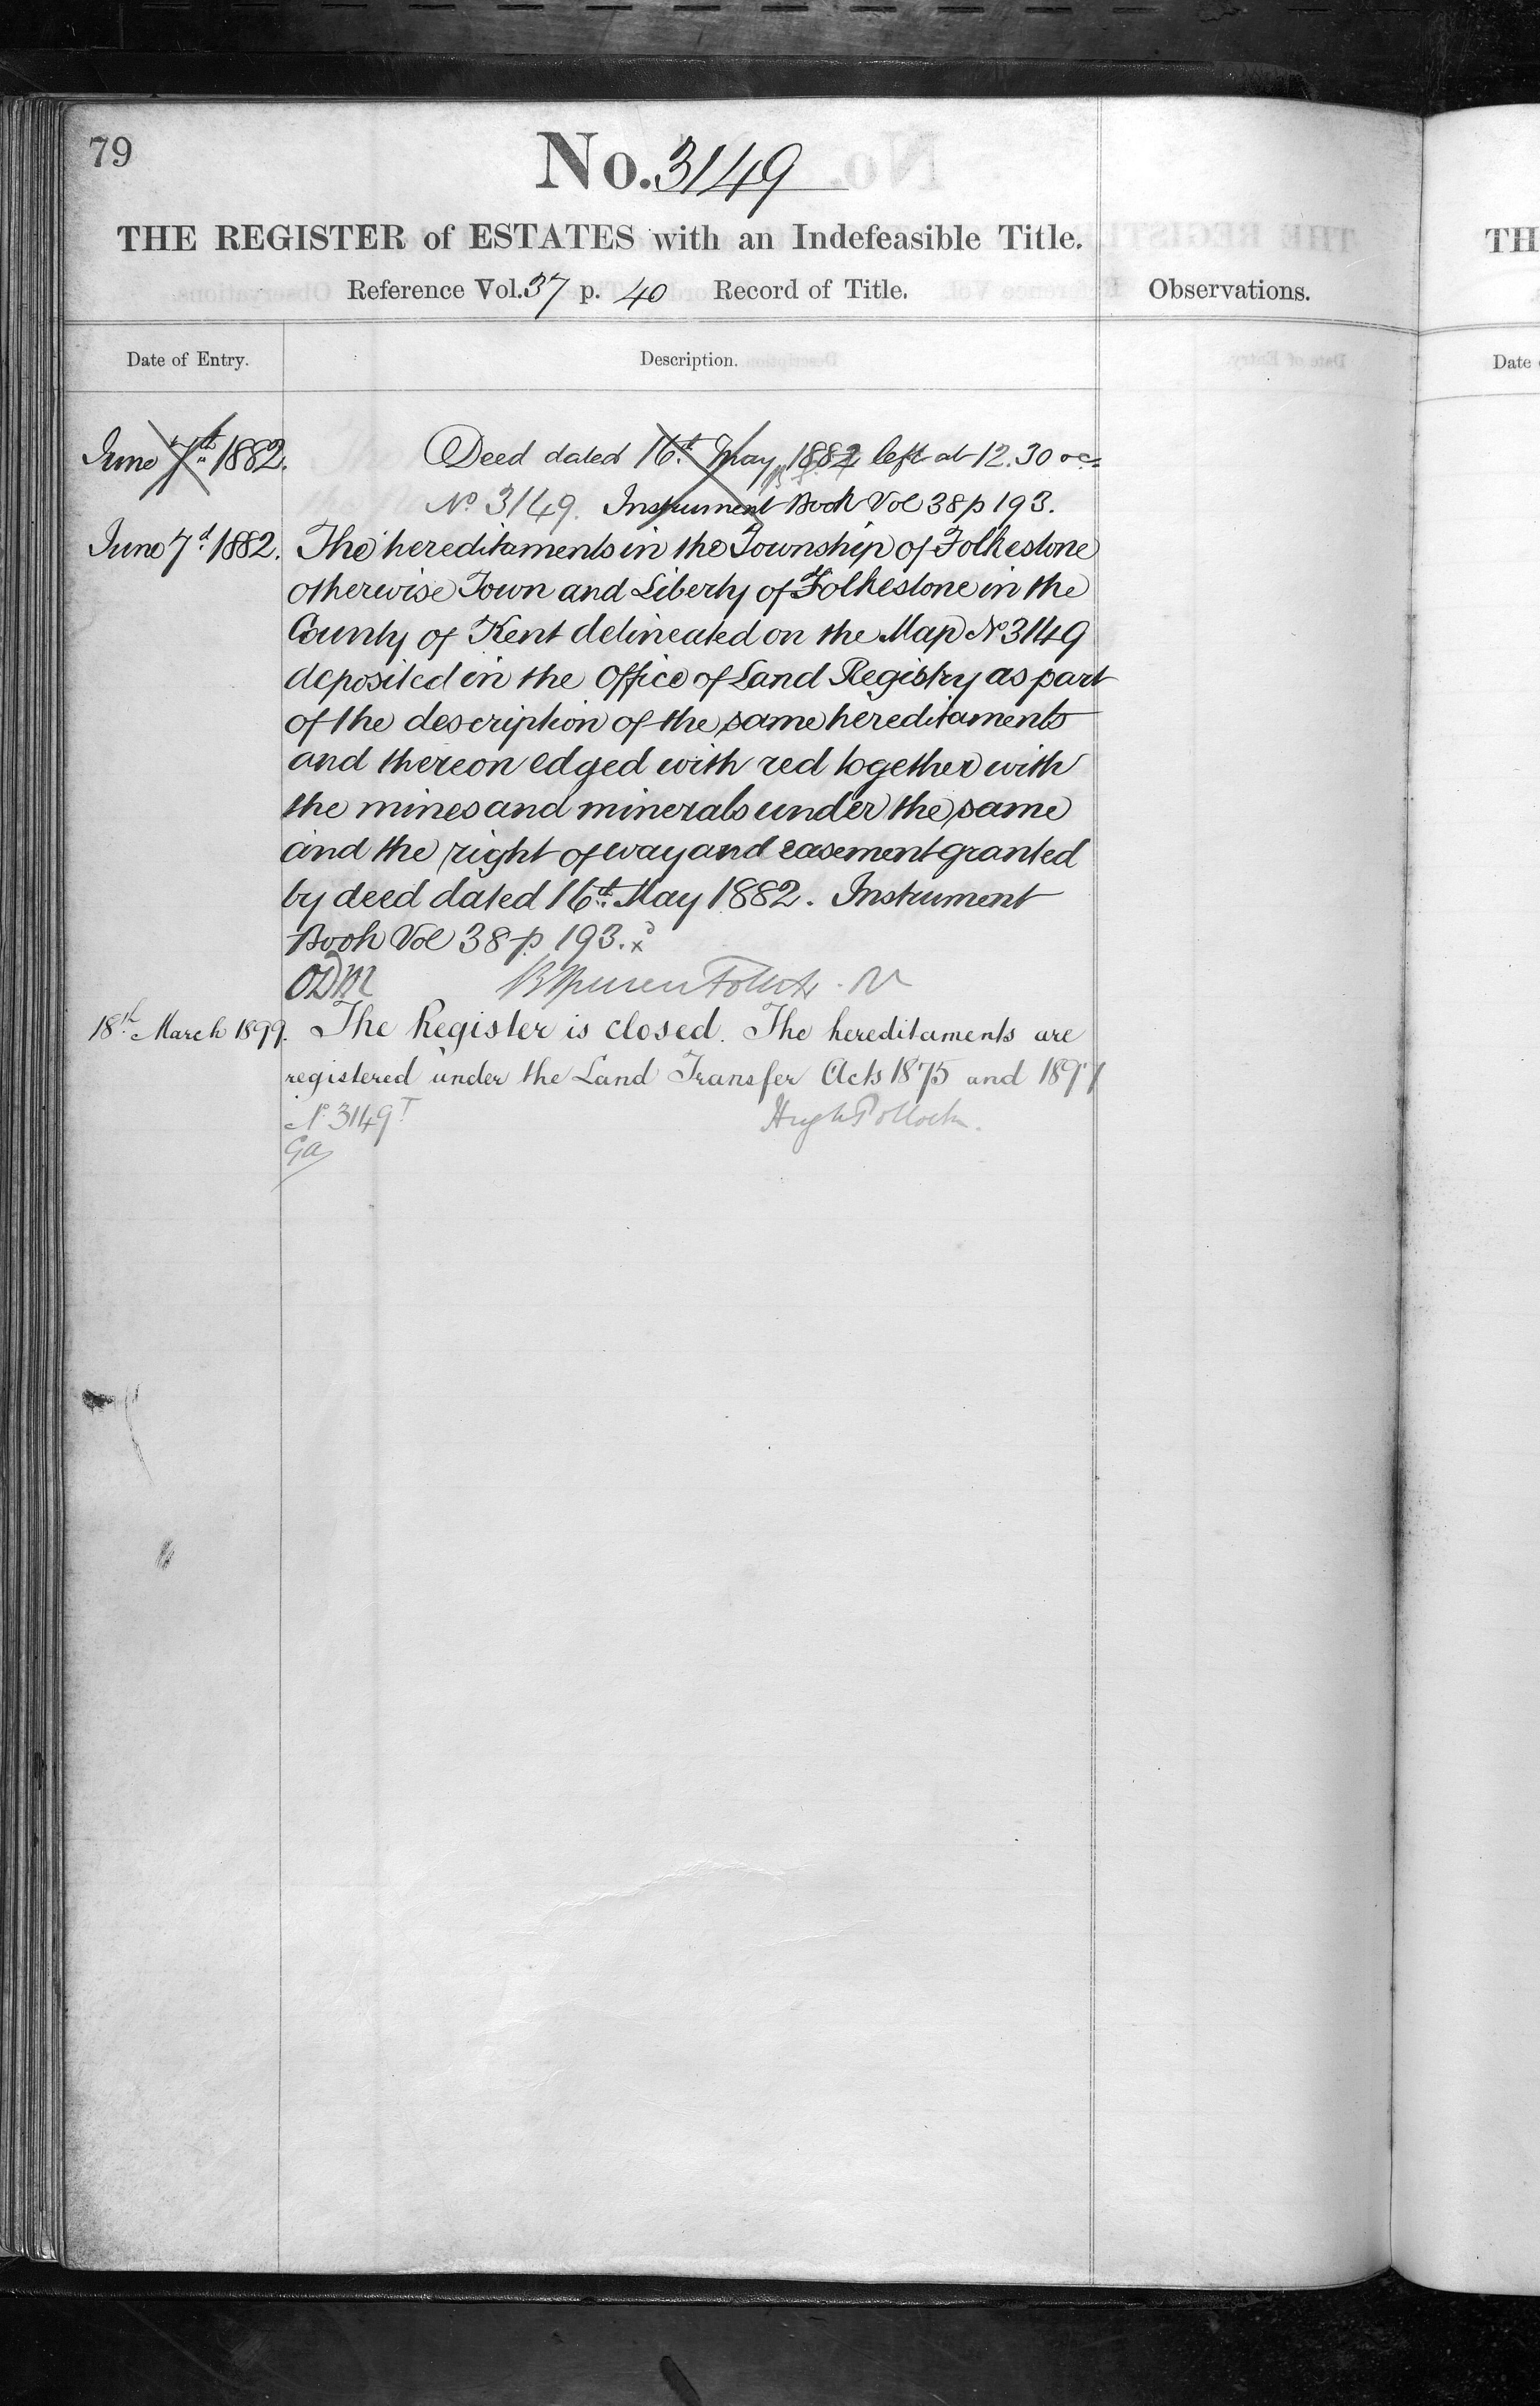 79
No. 3149
THE REGISTER of ESTATES with an Indefeasible Title.
Reference Vol. 37 p. 40 Record of Title.
Observations.
Date of Entry.
Description.
June 7th 1882.
Deed dated 16th May 1882 left at 12.30 oc
No 3149. Instrument Book Vol 38 p 193.
June 7th 1882.
The hereditaments in the Township of Folkestone
otherwise Town and Liberty of Folkestone in the
County of Kent delineated on the Map No 3149
deposited in the Office of Land Registry as part
of the description of the same hereditaments
and thereon edged with red together with
the mines and minerals under the same
and the right of way and easement granted
by deed dated 16th May 1882. Instrument
Book Vol 38 p 193.
ODM
18th March 1899.
The Register is closed. The hereditaments are
registered under the Land Transfer Acts 1875 and 1897
No 3149T
Hugh Pollock.
Ga
TH
Date